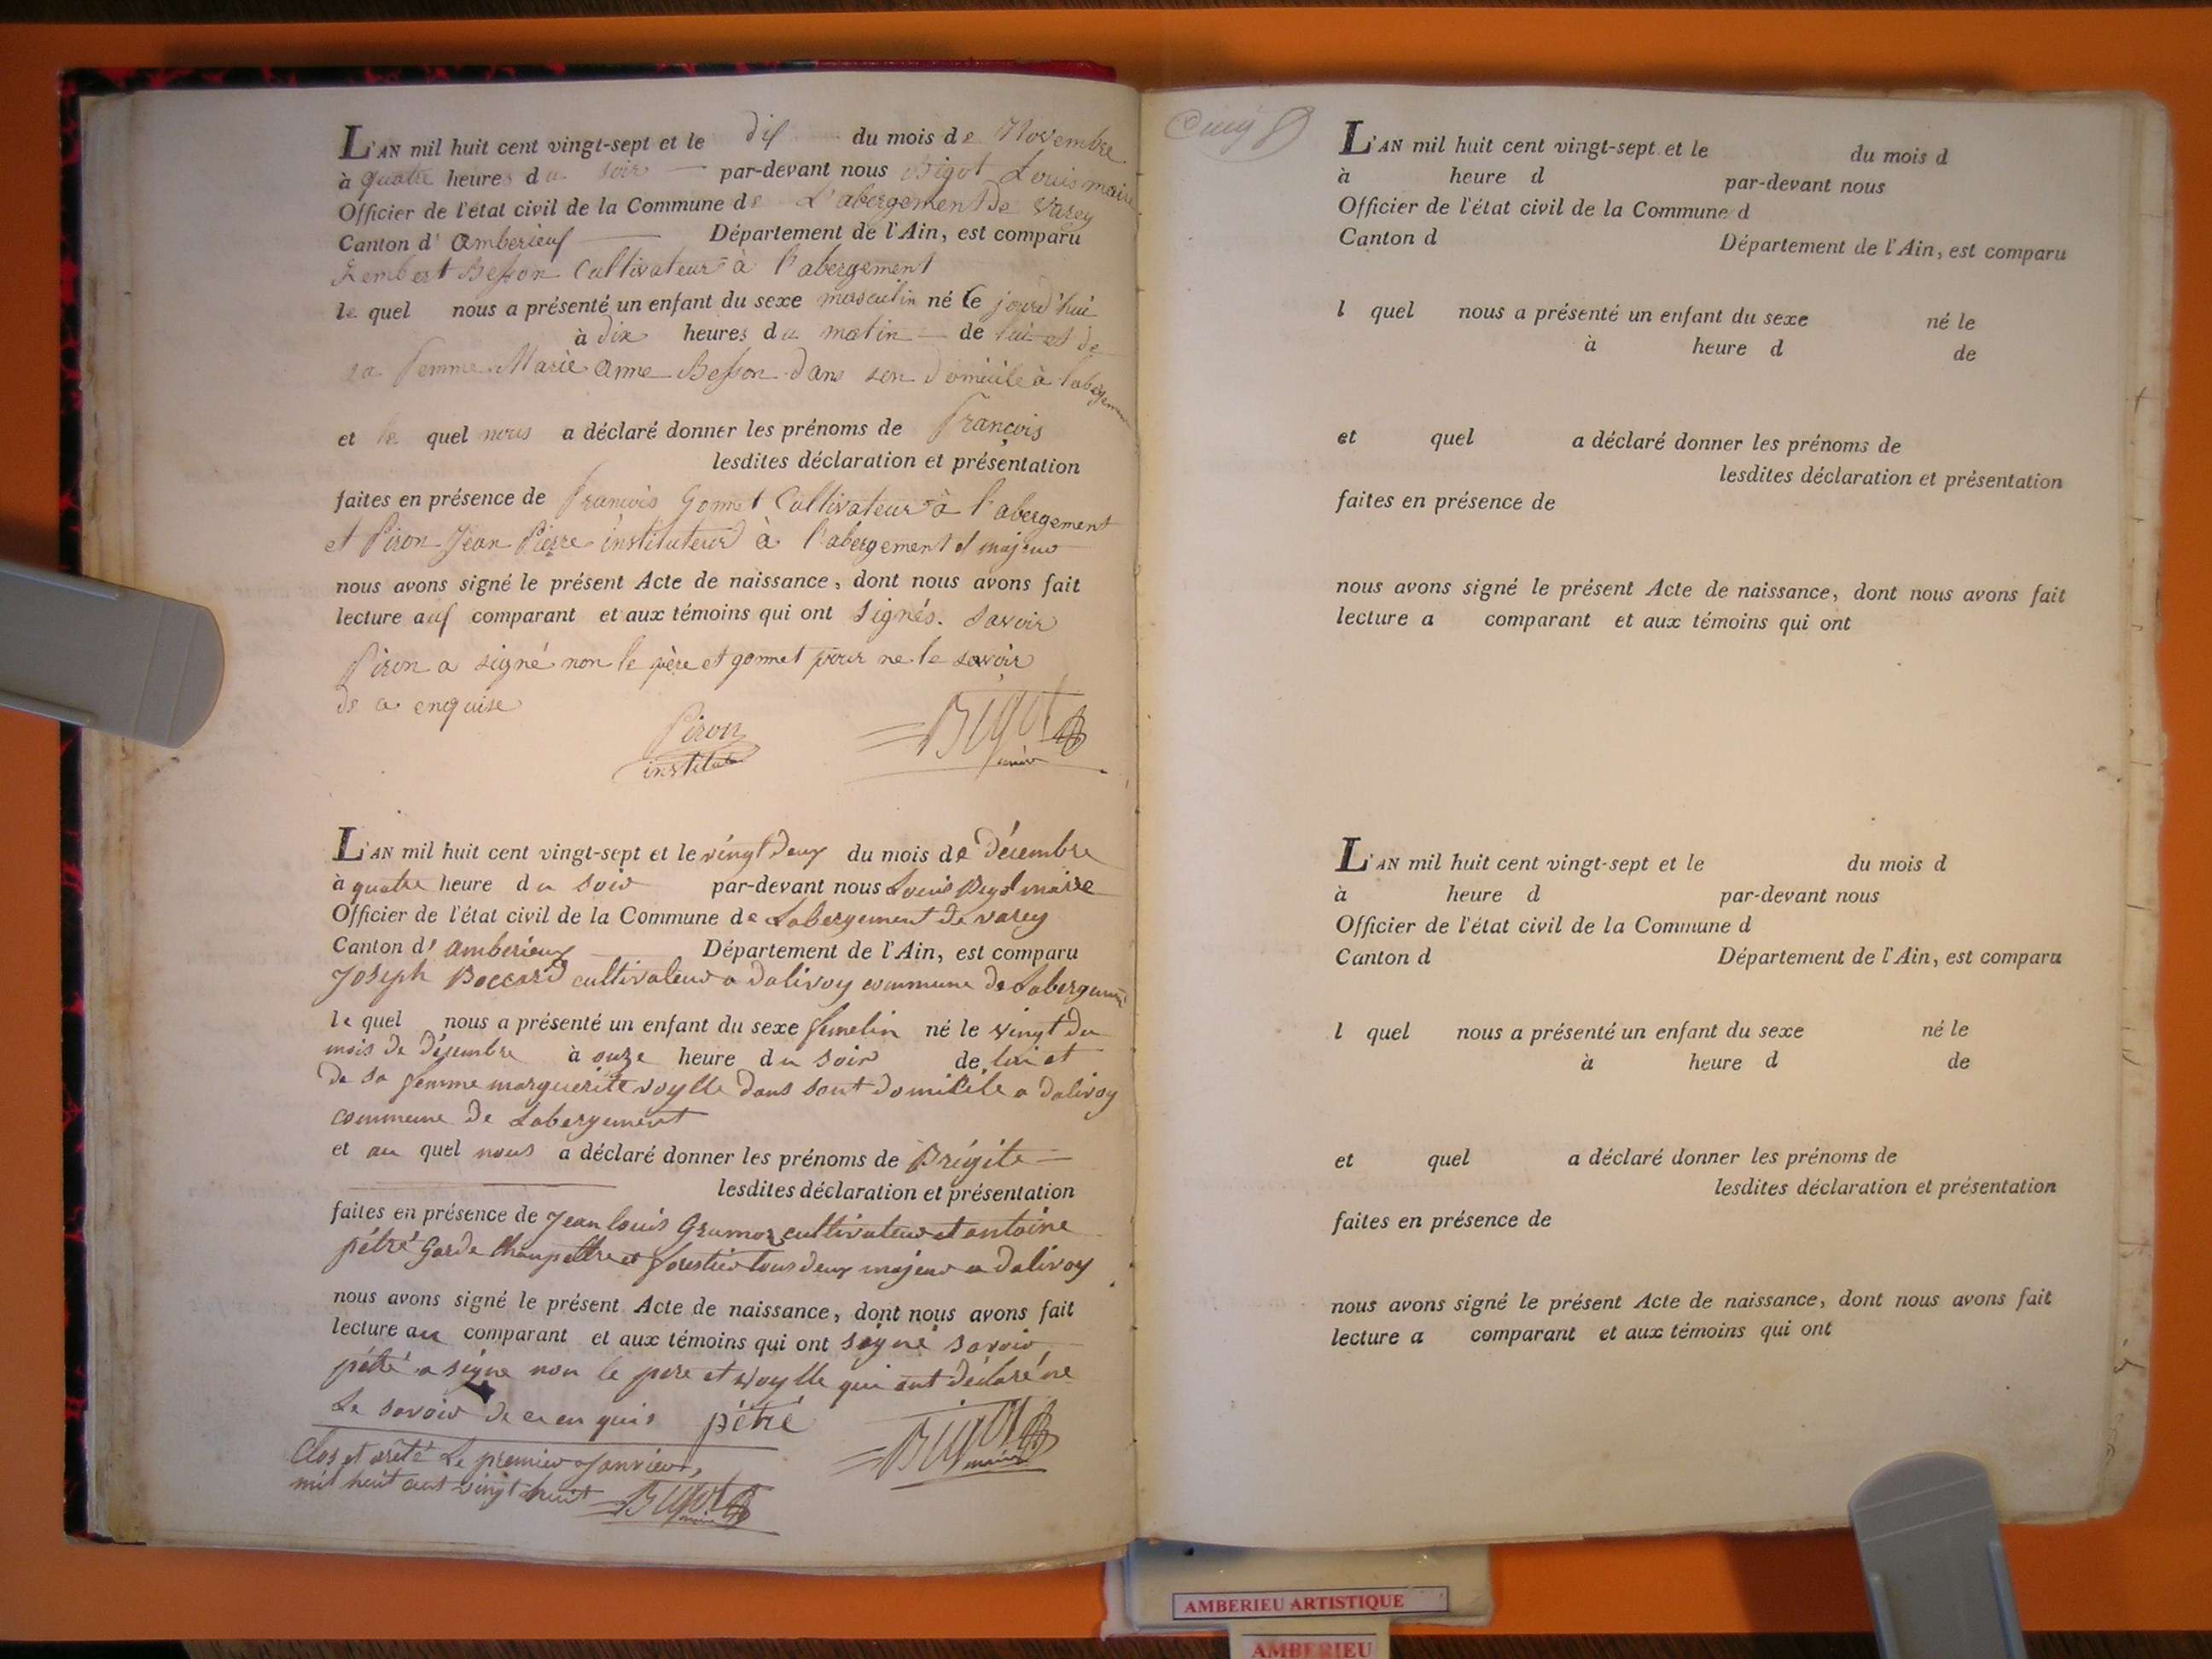 L'AN mil huit cent vingt-sept et le dix du mois de Novembre
à quatre heures du soir par-devant nous Bigot Louis maire
Officier de l'état civil de la Commune de L'abergement De Varey
Canton d' amberieux Département de l'Ain, est comparu
Rembert Besson Cultivateur à l'abergement
le quel nous a présenté un enfant du sexe masculin né le jourd'hui
à dix heures du matin de lui et de
sa femme Marie anne Besson dans son domicile à l'abergement
et le quel nous a déclaré donner les prénoms de François
lesdites déclaration et présentation
faites en présence de François Gonnet Cultivateur à l'abergement
et Piron Jean Pierre instituteur à l'abergement et majeur
nous avons signé le présent Acte de naissance, dont nous avons fait
lecture aux comparant et aux témoins qui ont Signés. Savoir
Piron a signé non le père et gonnet pour ne le savoir
de a enquise
Piron Bigot
institut maire
L'AN mil huit cent vingt-sept et le vingt deux du mois de Décembre
à quatre heure du soir par-devant nous Louis Bigot maire
Officier de l'état civil de la Commune de Labergement de varey
Canton d' amberieux Département de l'Ain, est comparu
Joseph Boccard cultivateur a Dalivoy commune de Labergement
le quel nous a présenté un enfant du sexe femelin né le vingt du
mois de Désembre à onze heure du soir de lui et
de sa femme marguerite voylle dans sont domicile a dalivoy
commune de Labergement
et au quel nous a déclaré donner les prénoms de Brégite
lesdites déclaration et présentation
faites en présence de Jean louis cultivateur et antoine
pétré Garde Champettre et forestier tous deux majeur a Dalivoy
nous avons signé le présent Acte de naissance, dont nous avons fait
lecture au comparant et aux témoins qui ont signé savoir
pétré a signe non le pere et voylle qui ont déclaré ne
Le savoir de ce en quis pétré Bigot
maire
Clos et arêté Le premier Janvier
mil huit cent vingt huit Bigot
maire
L'AN mil huit cent vingt-sept et le du mois d
à heure d par-devant nous
Officier de l'état civil de la Commune d
Canton d Département de l'Ain, est comparu
l quel nous a présenté un enfant du sexe né le
à heure d de
et quel a déclaré donner les prénoms de
lesdites déclaration et présentation
faites en présence de
nous avons signé le présent Acte de naissance, dont nous avons fait
lecture a comparant et aux témoins qui ont
L'AN mil huit cent vingt-sept et le du mois d
à heure d par-devant nous
Officier de l'état civil de la Commune d
Canton d Département de l'Ain, est comparu
l quel nous a présenté un enfant du sexe né le
à heure d de
et quel a déclaré donner les prénoms de
lesdites déclaration et présentation
faites en présence de
nous avons signé le présent Acte de naissance, dont nous avons fait
lecture a comparant et aux témoins qui ont
AMBERIEU ARTISTIQUE
AMBERIEU